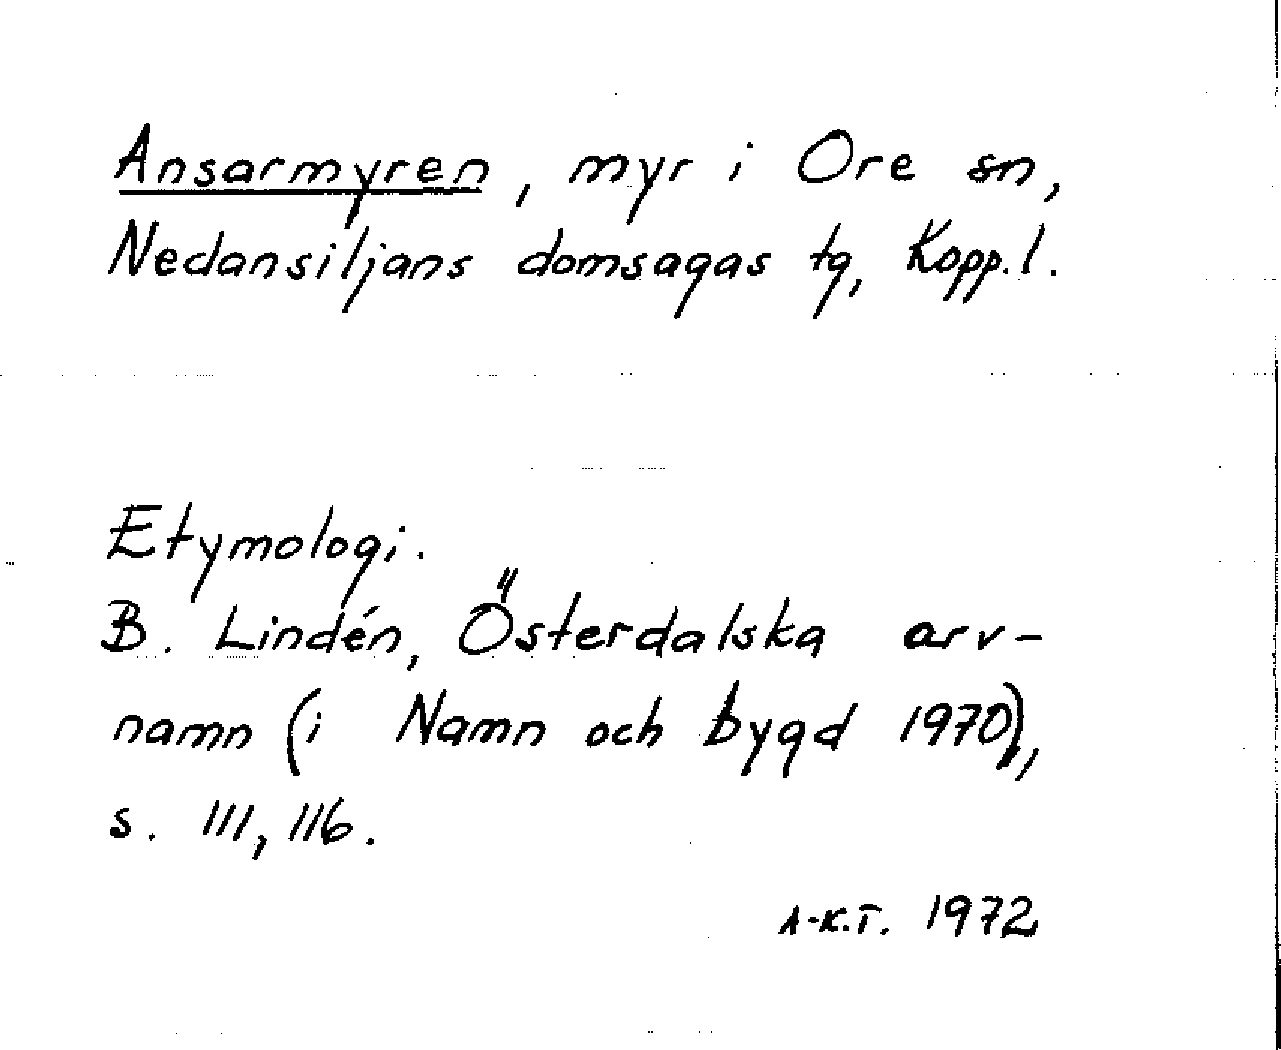 Ansarmyren, myr i Ore sn,
Nedansiljans domsagas tg, Kopp.l.
Etymologi.
B. Lindén, Österdalska arv-
namn (i Namn och bygd 1970),
s. 111, 116.
A-K.T. 1972